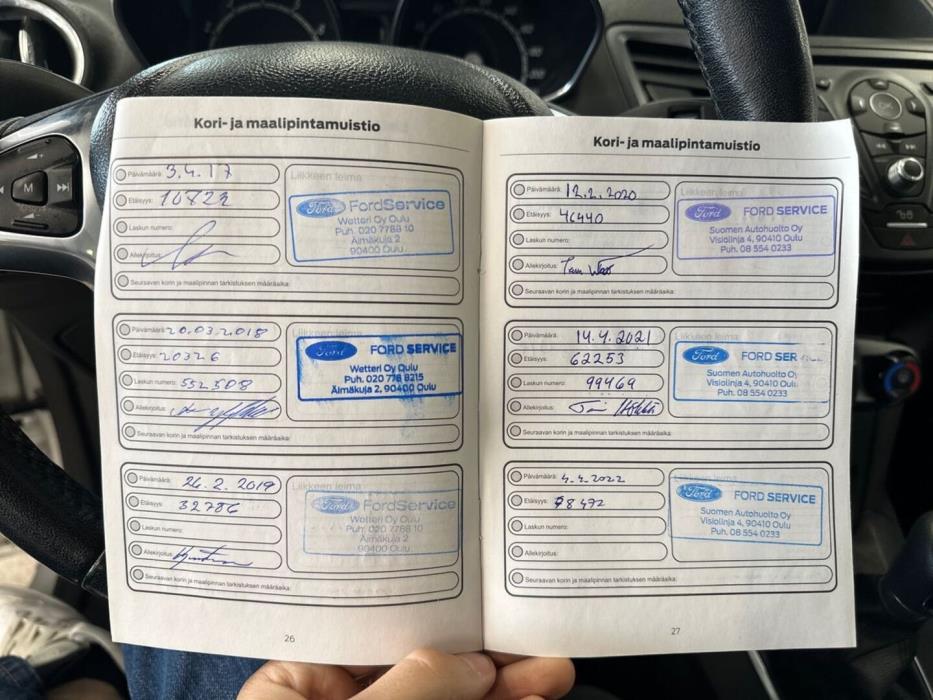 Kori- ja maalipintamuistio
Päivämäärä: 3.4.17
Etäisyys: 10822
Laskun numero:
Allekirjoitus:
Seuraavan korin ja maalipinnan tarkistuksen määräaika:
Liikkeen leima
Ford FordService
Wetteri Oy Oulu
Puh. 020 7788 10
Äimäkuja 2
90400 Oulu
Päivämäärä: 20.03.2018
Etäisyys: 20326
Laskun numero: 552508
Allekirjoitus:
Seuraavan korin ja maalipinnan tarkistuksen määräaika:
Liikkeen leima
Ford FORD SERVICE
Wetteri Oy Oulu
Puh. 020 778 8215
Äimäkuja 2, 90400 Oulu
Päivämäärä: 26.2.2019
Etäisyys: 32786
Laskun numero:
Allekirjoitus:
Seuraavan korin ja maalipinnan tarkistuksen määräaika:
Liikkeen leima
Ford FordService
Wetteri Oy Oulu
Puh. 020 7788 10
Äimäkuja 2
90400 Oulu
26
Kori- ja maalipintamuistio
Päivämäärä: 12.2.2020
Etäisyys: 46440
Laskun numero:
Allekirjoitus:
Seuraavan korin ja maalipinnan tarkistuksen määräaika:
Liikkeen leima
Ford FORD SERVICE
Suomen Autohuolto Oy
Visiolinja 4, 90410 Oulu
Puh. 08 554 0233
Päivämäärä: 14.4.2021
Etäisyys: 62253
Laskun numero: 99469
Allekirjoitus:
Seuraavan korin ja maalipinnan tarkistuksen määräaika:
Liikkeen leima
Ford FORD SER
Suomen Autohuolto Oy
Visiolinja 4, 90410 Oulu
Puh. 08 554 0233
Päivämäärä: 4.4.2022
Etäisyys: 78472
Laskun numero:
Allekirjoitus:
Seuraavan korin ja maalipinnan tarkistuksen määräaika:
Ford FORD SERVICE
Suomen Autohuolto Oy
Visiolinja 4, 90410 Oulu
Puh. 08 554 0233
27
M